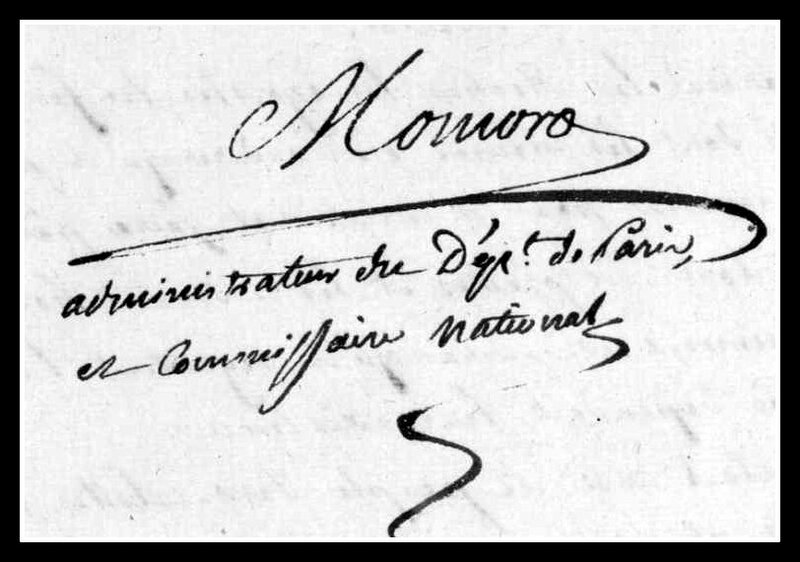 Momoro
administrateur du Dép.t de Paris,
et Commissaire national